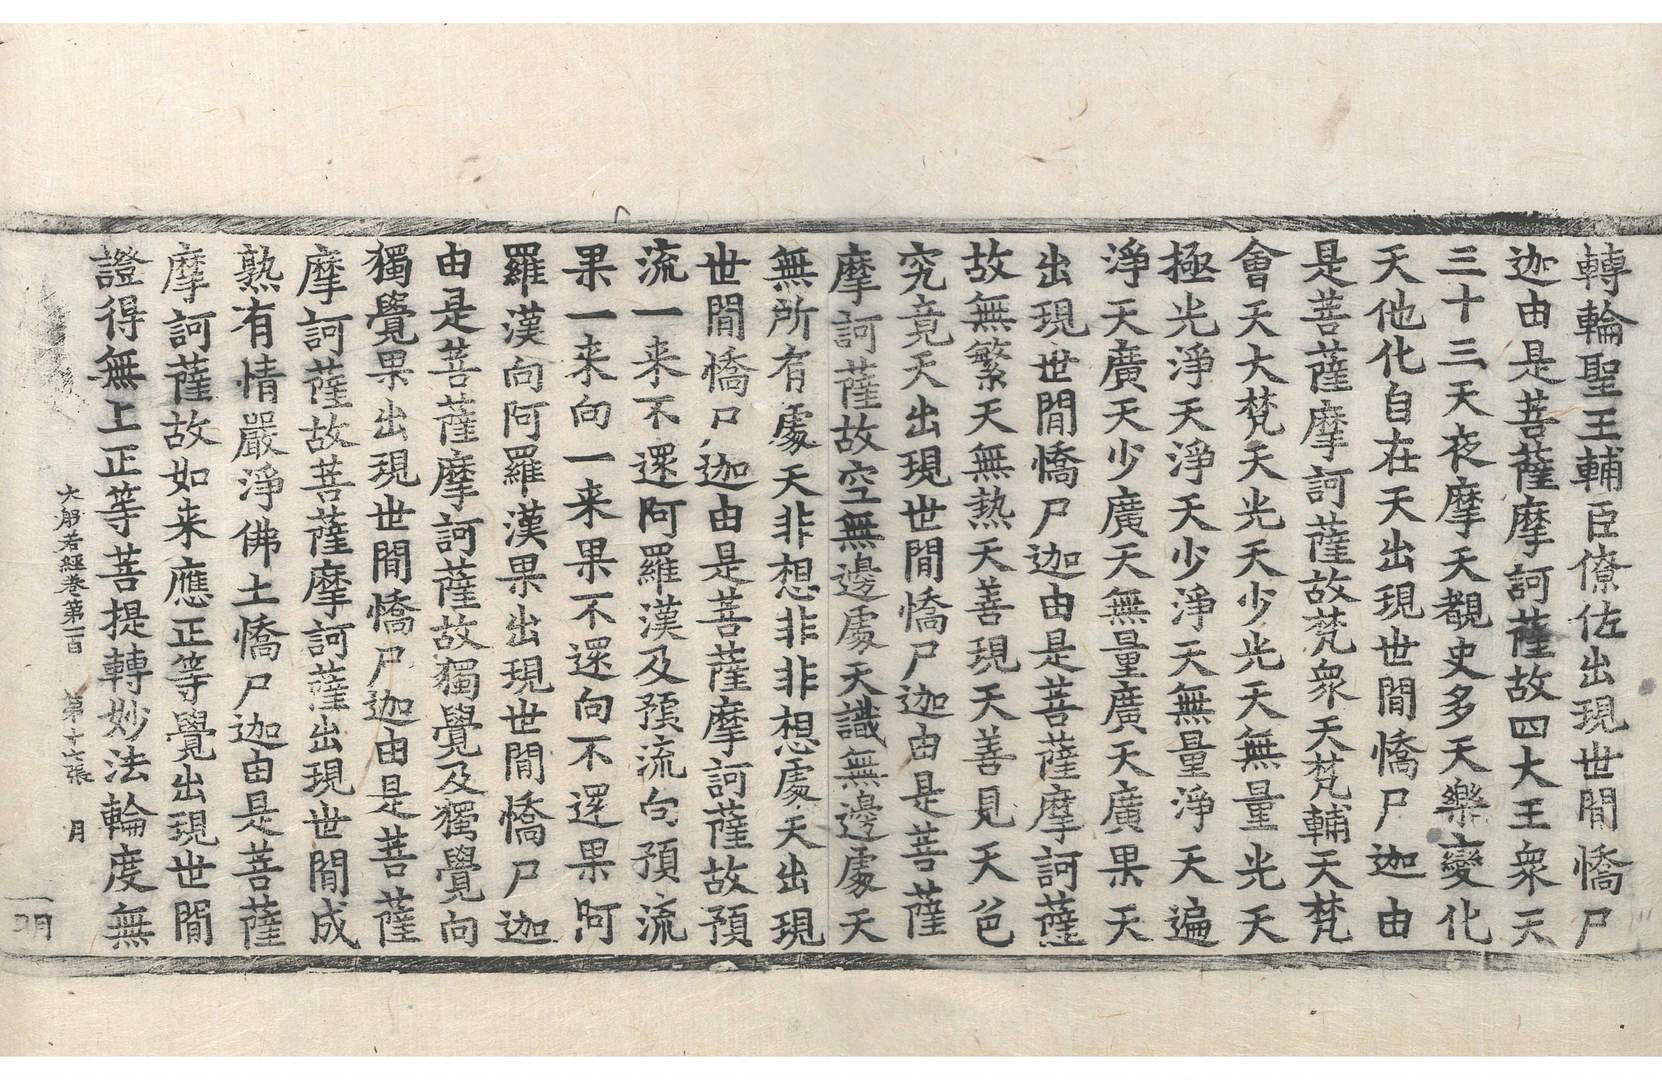 轉輪聖王輔臣僚佐出現世間憍尸
迦由是菩薩摩訶薩故四大王衆天
三十三天夜摩天覩史多天樂變化
天他化自在天出現世間憍尸迦由
是菩薩摩訶薩故梵衆天梵輔天梵
會天大梵天光天少光天無量光天
極光淨天淨天少淨天無量淨天遍
淨天廣天少廣天無量廣天廣果天
出現世間憍尸迦由是菩薩摩訶薩
故無繁天無熱天善現天善見天色
究竟天出現世間憍尸迦由是菩薩
摩訶薩故空無邊處天識無邊處天
無所有處天非想非非想處天出現
世間憍尸迦由是菩薩摩訶薩故預
流一来不還阿羅漢及預流向預流
果一来向一来果不還向不還果阿
羅漢向阿羅漢果出現世間憍尸迦
由是菩薩摩訶薩故獨覺及獨覺向
獨覺果出現世間憍尸迦由是菩薩
摩訶薩故菩薩摩訶薩出現世間成
熟有情嚴淨佛土憍尸迦由是菩薩
摩訶薩故如来應正等覺出現世間
證得無上正等菩提轉妙法輪度無
大般若經卷第一百 第十六張 月